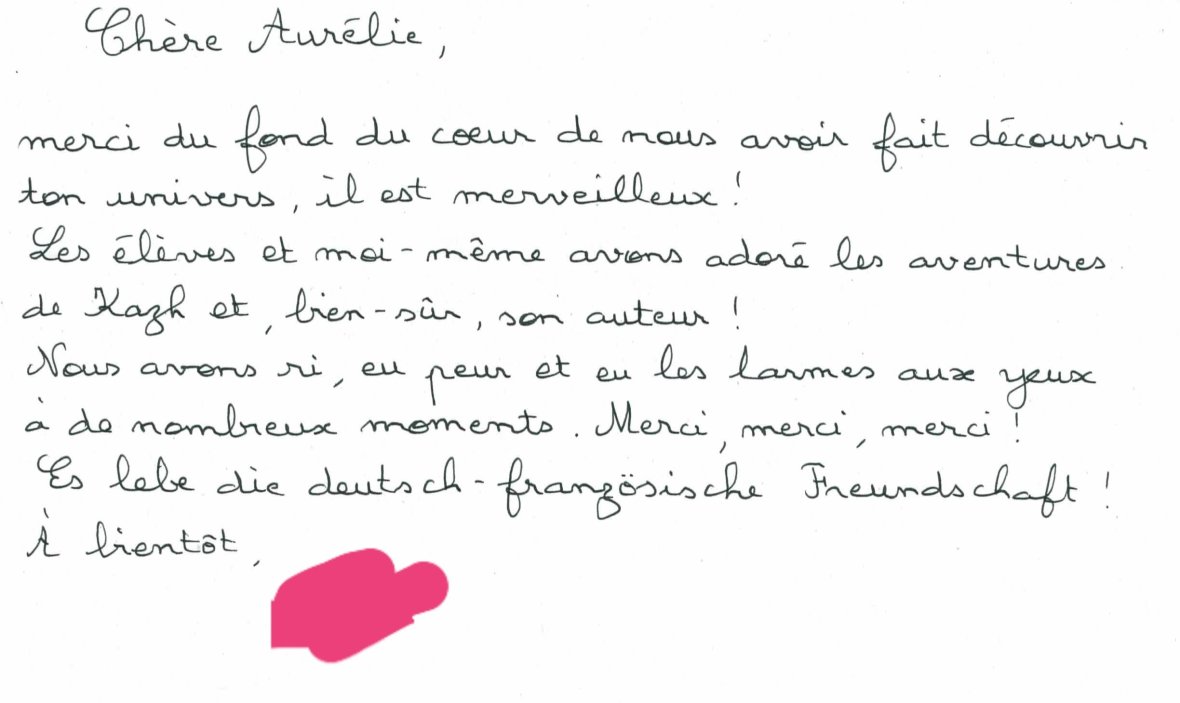 Chère Aurélie,
merci du fond du coeur de nous avoir fait découvrir
ton univers, il est merveilleux !
Les élèves et moi-même avons adoré les aventures
de Kazh et, bien-sûr, son auteur !
Nous avons ri, eu peur et eu les larmes aux yeux
à de nombreux moments. Merci, merci, merci !
Es lebe die deutsch-französische Freundschaft !
À bientôt,